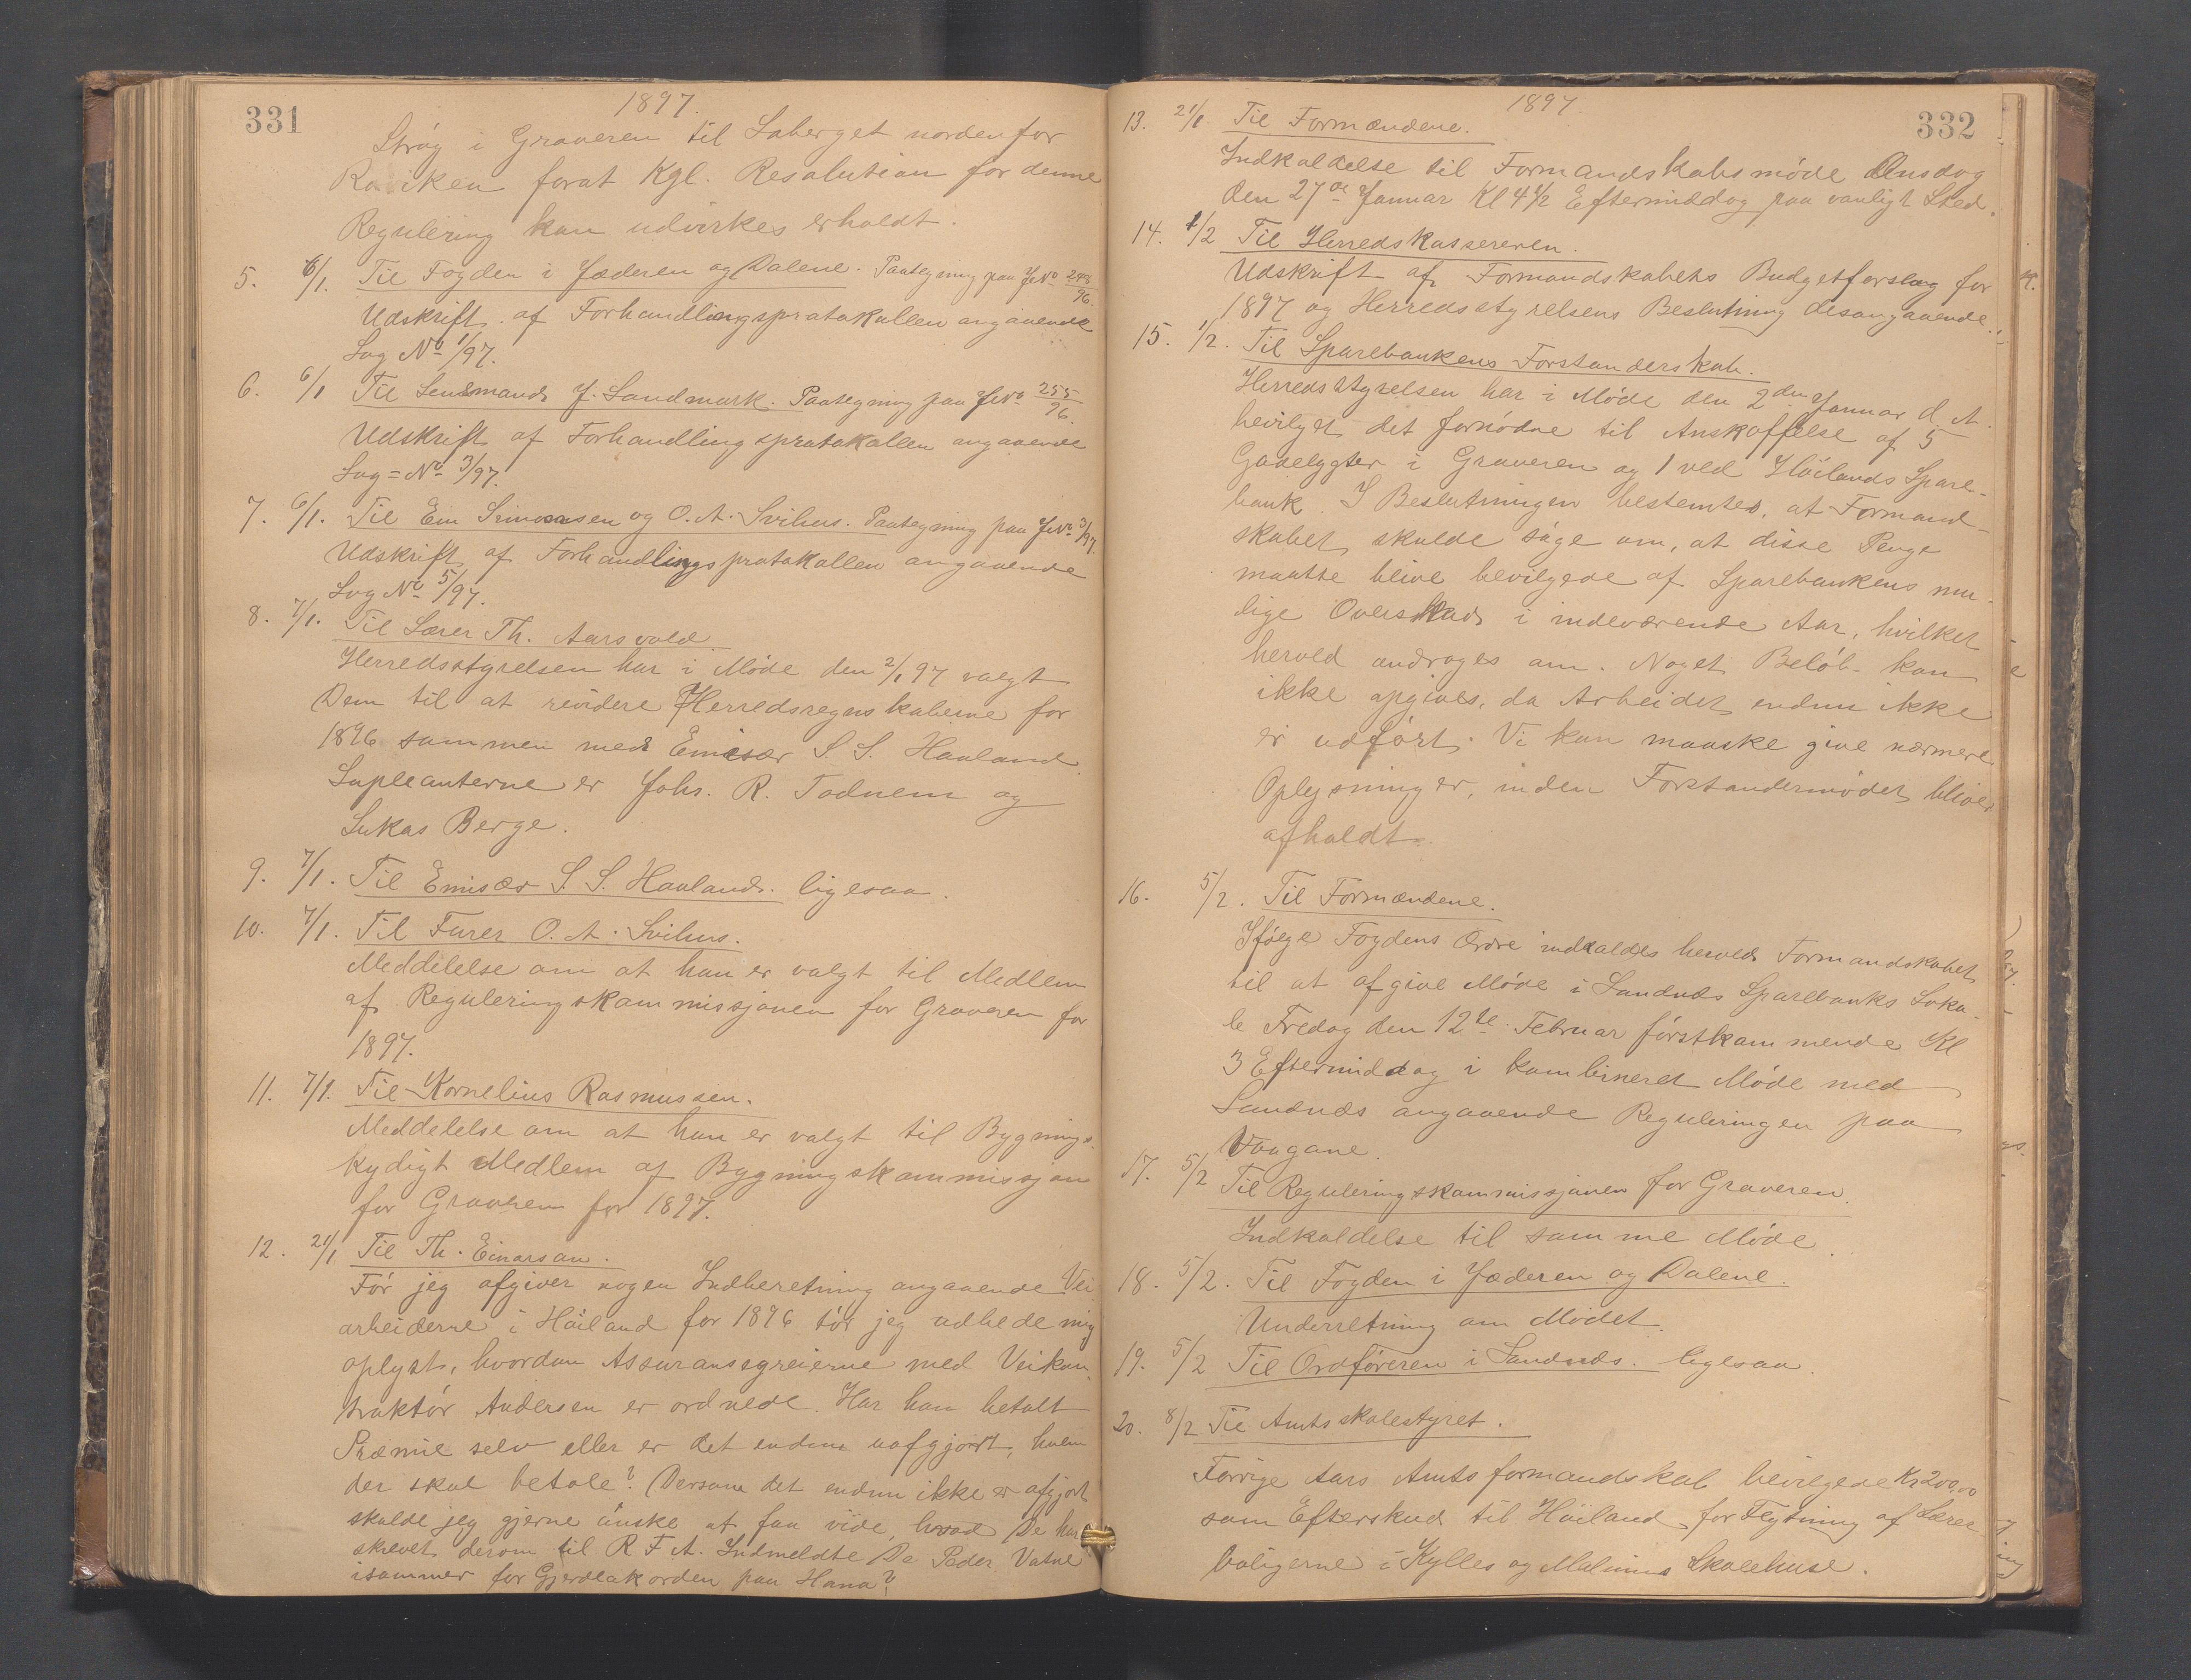 331
1897.
Strøg i Graveren til Laberget nordenfor
forat Kgl. Resolution for denne
Regulering kan udvirkes erholdt.
5. 6/1. Til Fogden i Jæderen og Dalene. Paategning paa JNo 248/96.
Udskrift af Forhandlingsprotokollen angaaende
Sag No 1/97.
6. 6/1 Til Lensmand J. Landmark. Paategning paa JNo 255/96.
Udskrift af Forhandlingsprotokollen angaaende
Sag=No 3/97.
7. 6/1. Til Em Simonsen og O. A. Svihus. Paategning paa JNo 3/97.
Udskrift af Forhandlingsprotokollen angaaende
Sag No 5/97.
8. 7/1. Til Lærer Th. Aarsvold.
Herredsstyrelsen har i Møde den 2/1 97 valgt
Dem til at revidere Herredsregnskaberne for
1896 sammen med Emisær S. S. Havland.
Supleanterne er Johs. R. Todnem og
Lukas Berge.
9. 7/1. Til Emisær S. S. Havland. ligesaa.
10. 7/1. Til Furer O. A. Svihus.
Meddelelse om at han er valgt til Medlem
af Reguleringskommissjonen for Graveren for
1897.
11. 7/1. Til Kornelius Rasmussen.
Meddelelse om at han er valgt til Bygnings-
kydigt Medlem af Bygningskommissjon
for Graveren for 1897.
12. 21/1 Til Th. Einarsen.
Før jeg afgiver nogen Indberetning angaaende Vei
arbeiderne i Høiland for 1896 tør jeg udbede mig
oplyst, hvordan Assuransegreierne med Veikon-
traktør Andersen er ordnede. Har han betalt
Præmie selv eller er det endnu uafgjort, hvem
der skal betale? Dersom det endnu ikke er afgjort
skulde jeg gjerne ønske at faa vide, hvad De har
skrevet derom til R F A. Indmeldte De Peder Vatne
isommer for Gjerdeakorden paa Hana?
1897.
332
13. 21/1. Til Formændene.
Indkaldelse til Formandskabsmøde Onsdag
den 27de Januar Kl 4 1/2 Eftermiddag paa vanligt Sted.
14. 1/2 Til Herredskassereren.
Udskrift af Formandskabets Budgetforslag for
1897 og Herredsstyrelsens Beslutning desangaaende.
15. 1/2. Til Sparebankens Forstanderskab.
Herredsstyrelsen har i Møde den 2den Januar d. A.
bevilget det fornødne til Anskaffelse af 5
Gadelygter i Graveren og 1 ved Høilands Spare-
bank. I Beslutningen bestemtes, at Formand-
skabet skulde søge om, at disse Penge
maatte blive bevilgede af Sparebankens mu-
lige Overskud i indeværende Aar, hvilket
herved andrages om. Noget Beløb kan
ikke opgives, da Arbeidet endnu ikke
er udført. Vi kan maaske give nærmere
Oplysninger, inden Forstandermødet bliver
afholdt.
16. 5/2. Til Formændene.
Ifølge Fogdens Ordre indkaldes herved Formandskabet
til at afgive Møde i Sandnes Sparebanks Loka-
le Fredag den 12te Februar førstkommende Kl
3 Eftermiddag i kombineret Møde med
Sandnes angaaende Reguleringen paa
Vaagane.
17. 5/2 Til Reguleringskommissjonen for Graveren.
Indkaldelse til samme Møde.
18. 5/2. Til Fogden i Jæderen og Dalene.
Underretning om Mødet.
19. 5/2 Til Ordføreren i Sandnes. ligesaa.
20. 8/2 Til Amtsskolestyret.
Forrige Aars Amtsformandskab bevilgede Kr 200,00
som Efterskud til Høiland for Flytning af Lærer
boligerne i Kylles og Malmins Skolehuse.